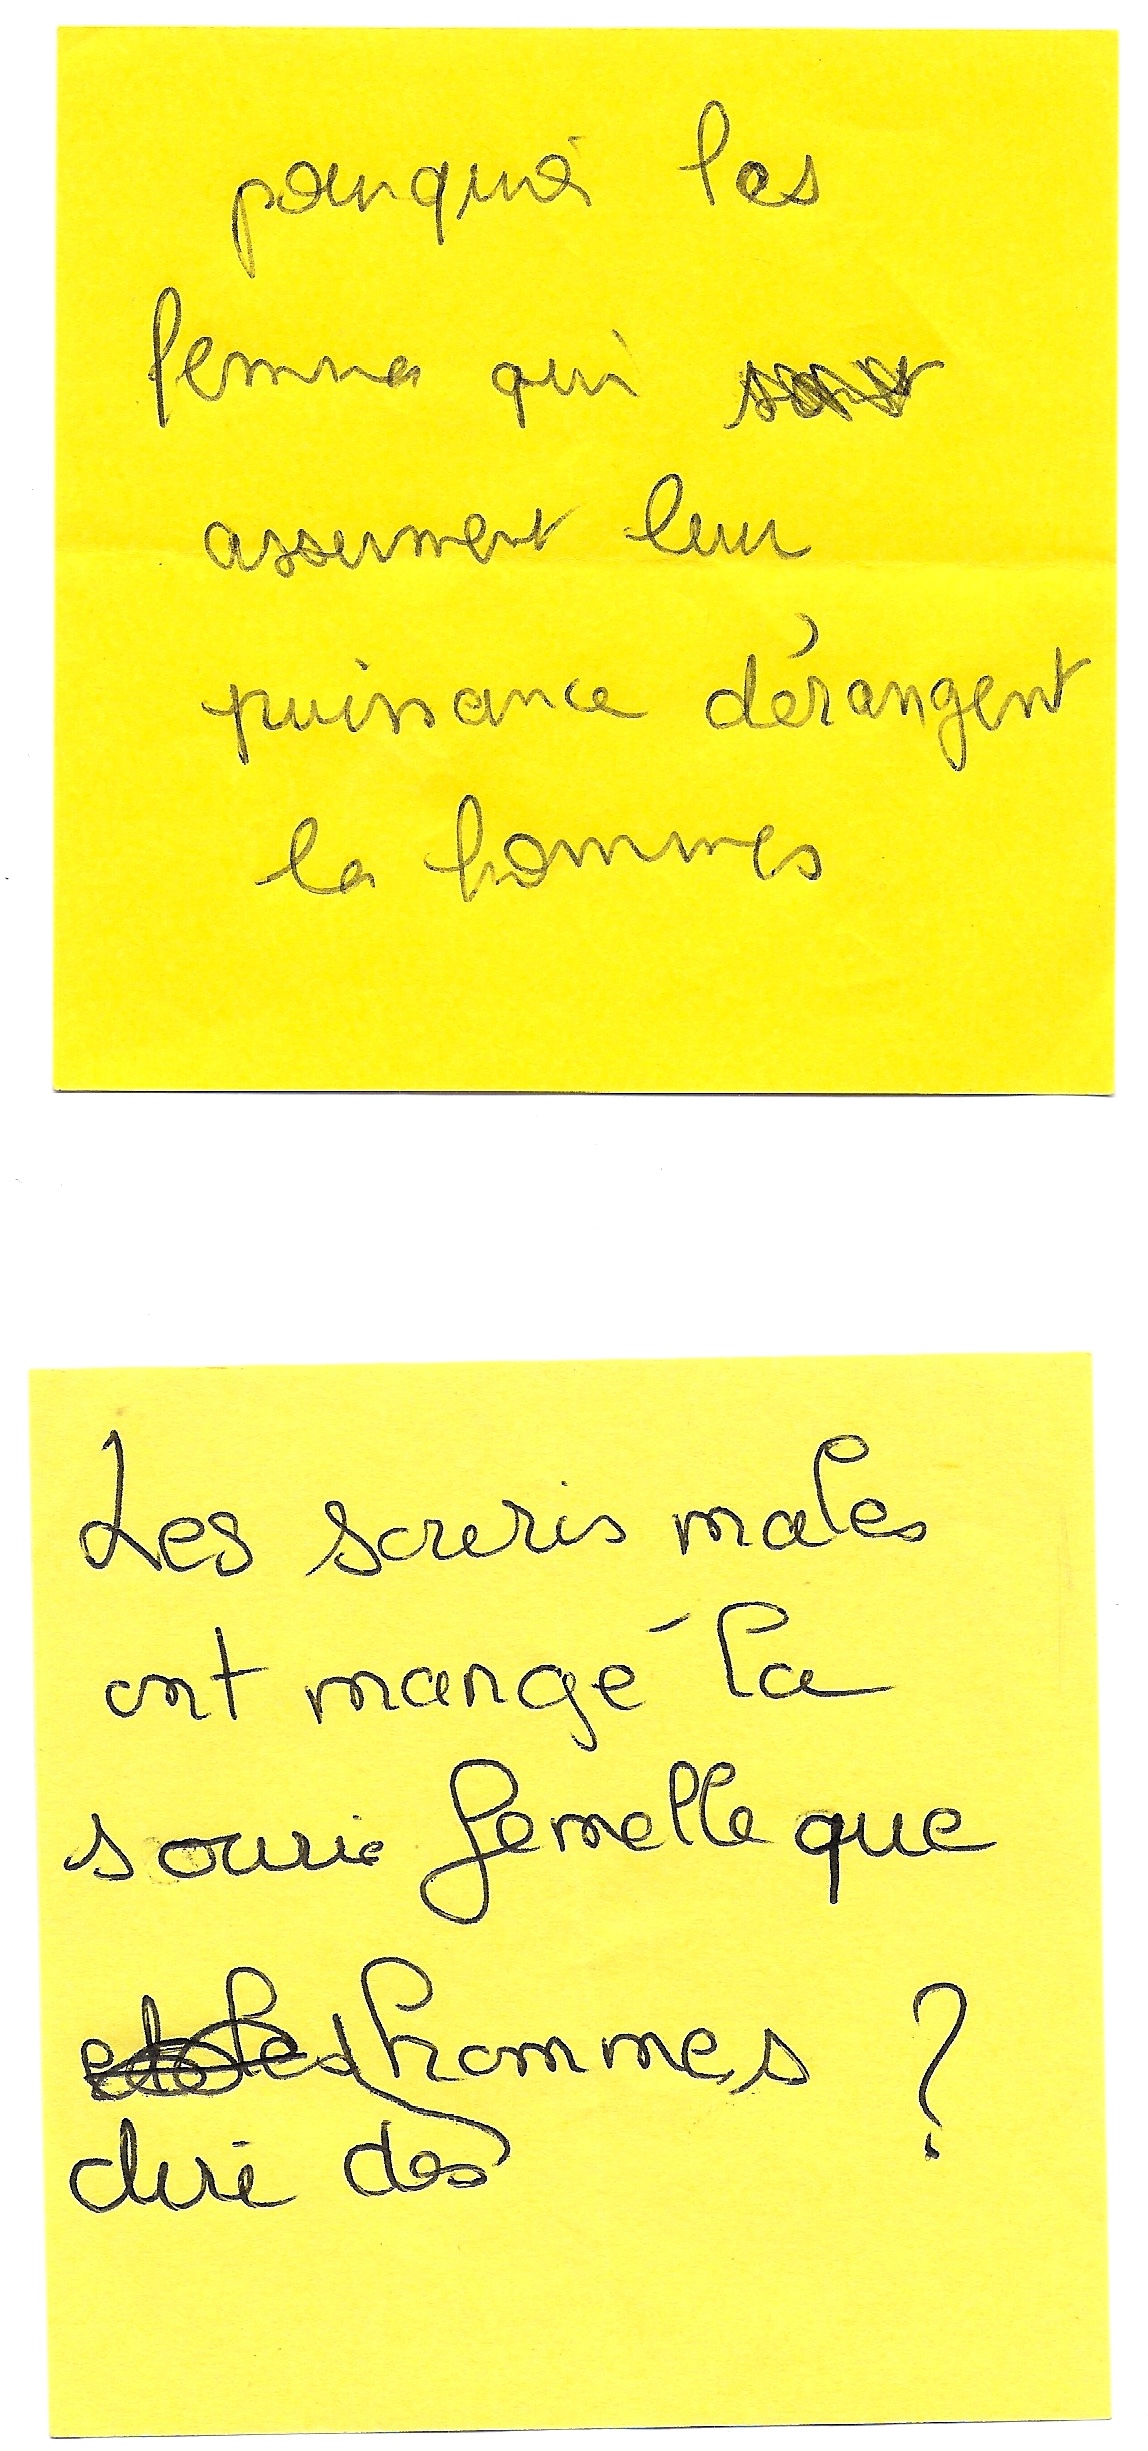 pourquoi les
femmes qui
assument leur
puissance dérangent
les hommes
Les souris males
ont mangé la
souris femelle que
hommes ?
dire des